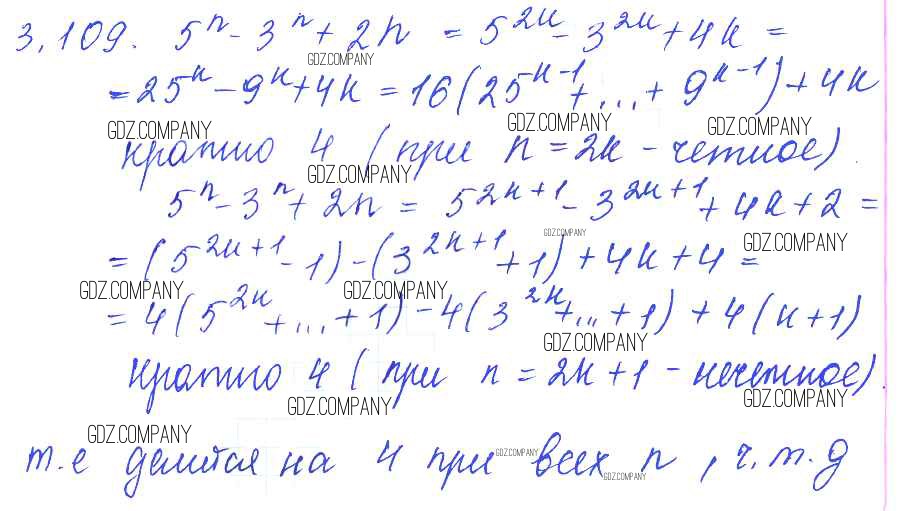 3,109. 5^n - 3^n + 2n = 5^{2k} - 3^{2k} + 4k =
GDZ.COMPANY
= 25^k - 9^k + 4k = 16(25^{k-1} + ... + 9^{k-1}) + 4k
GDZ.COMPANY GDZ.COMPANY GDZ.COMPANY
кратно 4 (при n = 2k - четное)
GDZ.COMPANY
5^n - 3^n + 2n = 5^{2k+1} - 3^{2k+1} + 4k + 2 =
GDZ.COMPANY GDZ.COMPANY
= (5^{2k+1} - 1) - (3^{2k+1} + 1) + 4k + 4 =
GDZ.COMPANY GDZ.COMPANY
= 4(5^{2k} + ... + 1) - 4(3^{2k} + ... + 1) + 4(k+1)
GDZ.COMPANY
кратно 4 (при n = 2k + 1 - нечетное)
GDZ.COMPANY GDZ.COMPANY
GDZ.COMPANY
т.е делится на 4 при всех n, ч.т.д
GDZ.COMPANY
GDZ.COMPANY